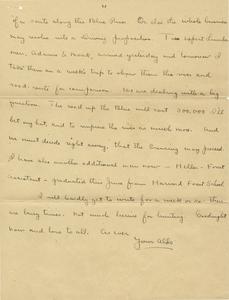 of a route along the Blue River. Or else the whole business
may resolve into a driving proposition. Two expert Lumber-
men, Adams & Mack, arrived yesterday and tomorrow I
take them on a week's trip to show them the river and
road routes for comparison. We are dealing with a big
question. The road up the Blue will cost 300,000 I'll
bet my hat, and to improve the river as much more. And
we must decide right away, that the cruising may proceed.
I have also another additional man now – Heller – Forest
Assistant – graduated this June from Harvard Forest School.
I will hardly get to write for a week or so – these
are busy times. Not much leisure for hunting. Goodnight
now and love to all. As ever
Your Aldo